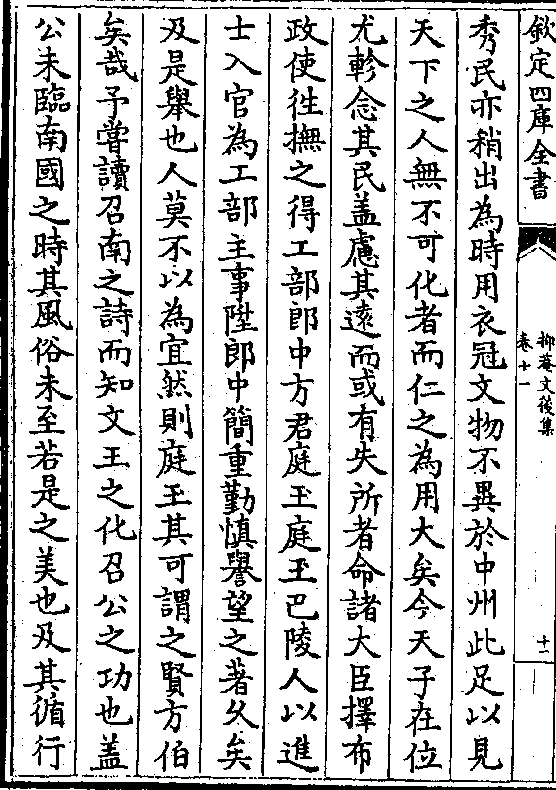 欽定四庫全書
抑菴文後集
卷十一
十一
秀民亦稍出為時用衣冠文物不異於中州此足以見
天下之人無不可化者而仁之為用大矣今天子在位
尤軫念其民盖慮其逺而或有失所者命諸大臣擇布
政使徃撫之得工部郎中方君庭玉庭玉巴陵人以進
士入官為工部主事陞郎中簡重勤慎譽望之著乆矣
及是舉也人莫不以為宜然則庭玉其可謂之賢方伯
矣哉予嘗讀召南之詩而知文王之化召公之功也盖
公未臨南國之時其風俗未至若是之美也及其循行